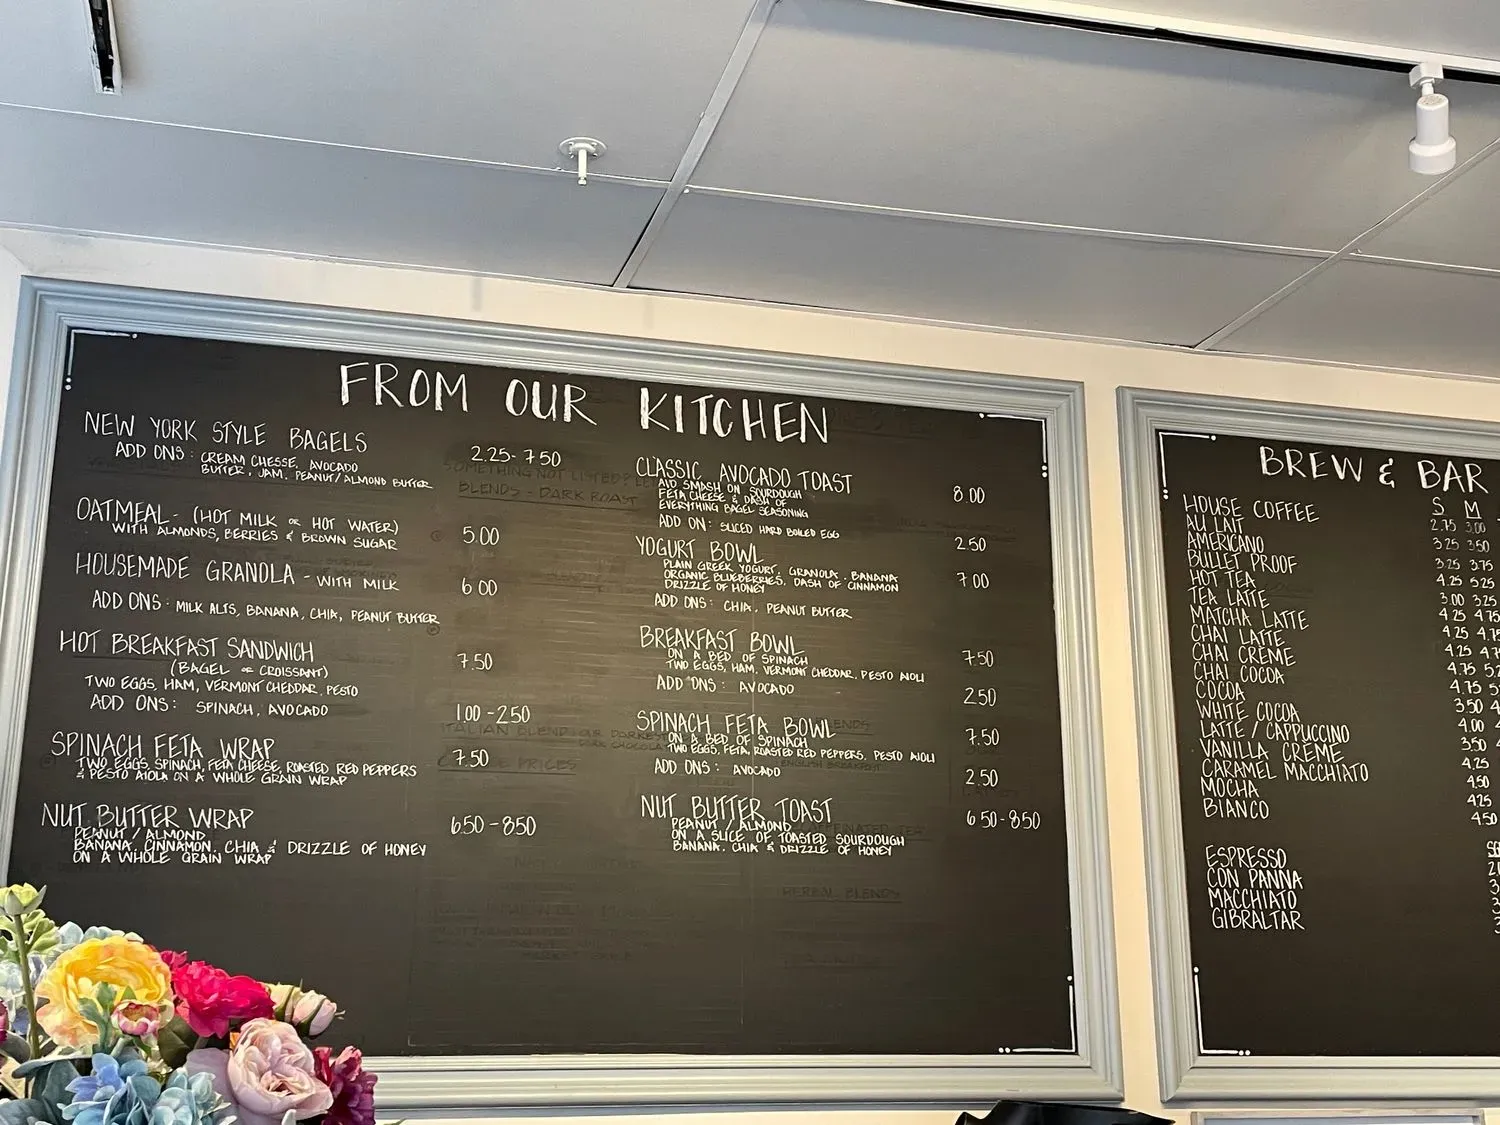 FROM OUR KITCHEN
NEW YORK STYLE BAGELS 2.25-7.50
ADD ONS: CREAM CHESSE, AVOCADO
BUTTER, JAM, PEANUT/ALMOND BUTTER
OATMEAL - (HOT MILK OR HOT WATER) 5.00
WITH ALMONDS, BERRIES & BROWN SUGAR
HOUSEMADE GRANOLA - WITH MILK 6.00
ADD ONS: MILK ALTS, BANANA, CHIA, PEANUT BUTTER
HOT BREAKFAST SANDWICH 7.50
(BAGEL OR CROISSANT)
TWO EGGS, HAM, VERMONT CHEDDAR, PESTO
ADD ONS: SPINACH, AVOCADO 1.00-2.50
SPINACH FETA WRAP 7.50
TWO EGGS, SPINACH, FETA CHEESE, ROASTED RED PEPPERS
& PESTO AIOLA ON A WHOLE GRAIN WRAP
NUT BUTTER WRAP 6.50-8.50
PEANUT / ALMOND
BANANA, CINNAMON, CHIA & DRIZZLE OF HONEY
ON A WHOLE GRAIN WRAP
CLASSIC AVOCADO TOAST 8.00
AVO SMASH ON SOURDOUGH
FETA CHEESE & DASH OF
EVERYTHING BAGEL SEASONING
ADD ON: SLICED HARD BOILED EGG 2.50
YOGURT BOWL 7.00
PLAIN GREEK YOGURT, GRANOLA, BANANA
ORGANIC BLUEBERRIES, DASH OF CINNAMON
DRIZZLE OF HONEY
ADD ONS: CHIA, PEANUT BUTTER
BREAKFAST BOWL 7.50
ON A BED OF SPINACH
TWO EGGS, HAM, VERMONT CHEDDAR, PESTO AIOLI
ADD ONS: AVOCADO 2.50
SPINACH FETA BOWL 7.50
ON A BED OF SPINACH
TWO EGGS, FETA, ROASTED RED PEPPERS, PESTO AIOLI
ADD ONS: AVOCADO 2.50
NUT BUTTER TOAST 6.50-8.50
PEANUT / ALMOND
ON A SLICE OF TOASTED SOURDOUGH
BANANA, CHIA & DRIZZLE OF HONEY
BREW & BAR
S M
HOUSE COFFEE 2.75 3.00
AU LAIT 3.25 3.50
AMERICANO 3.25 3.75
BULLET PROOF 4.25 5.25
HOT TEA 3.00 3.25
TEA LATTE 4.25 4.75
MATCHA LATTE 4.25 4.75
CHAI LATTE 4.25
CHAI CREME 4.75
CHAI COCOA 4.75
COCOA 3.50
WHITE COCOA 4.00
LATTE / CAPPUCCINO 3.50
VANILLA CREME 4.25
CARAMEL MACCHIATO 4.50
MOCHA 4.25
BIANCO 4.50
ESPRESSO
CON PANNA
MACCHIATO
GIBRALTAR